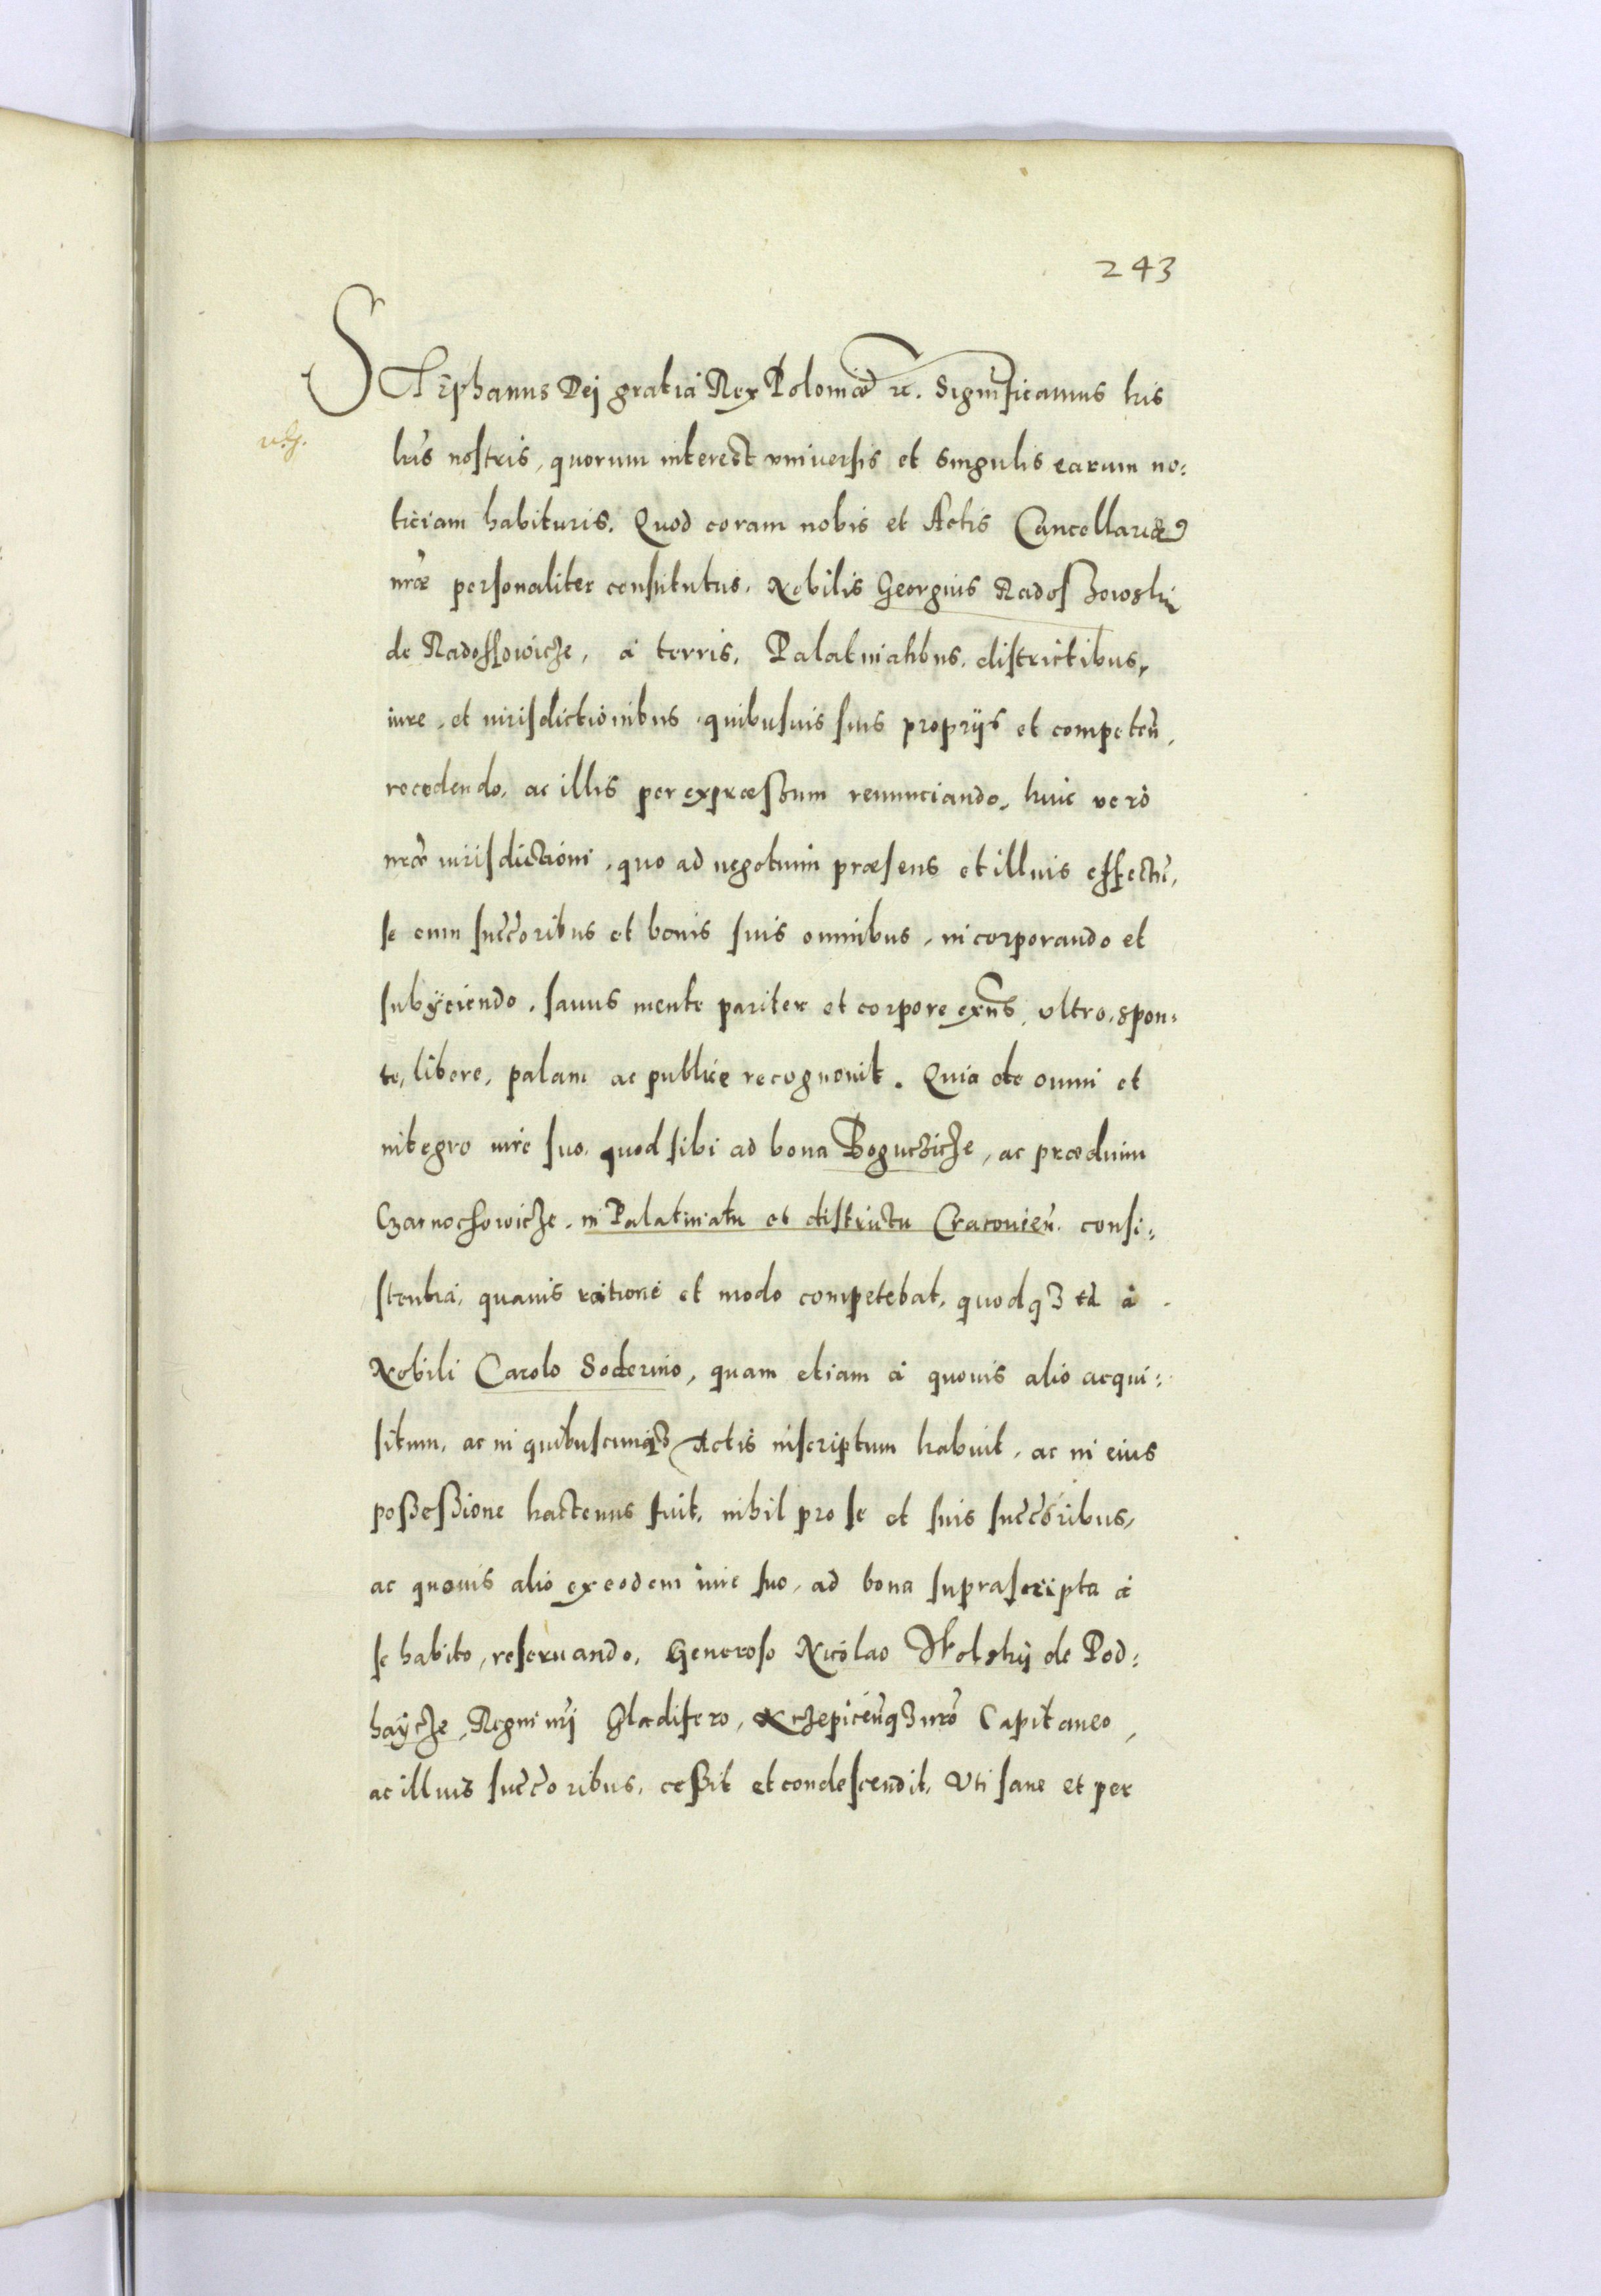 243
Stephanus Dej gratia Rex Poloniæ etc. Significamus his
lrīs nostris, quorum interest vniuersis et singulis earum no:
ticiam habituris. Quod coram nobis et Actis Cancellariæ
nræ personaliter constitutus, Nobilis Georgius Radoszowski
de Radossowicze, à terris, Palatinatibus, districtibus,
iure, et iurisdictionibus quibusuis suis proprijs et competeñ,
recedendo, ac illis per expræssum renunciando, huic verò
nræ iurisdictioni, quo ad negotium præsens et illius effectū,
se cum succōribus et bonis suis omnibus, incorporando et
subijciendo, sanus mente pariter et corpore exñs, vltro, spon:
te, libere, palam ac publice recognouit. Quia de omni et
integro iure suo, quod sibi ad bona Boguczicze, ac prædium
Czarnochowicze, in Palatinatu et districtu Cracouieñ. consi:
stentia, quauis ratione et modo competebat, quodq3 tā à
Nobili Carolo Soderino, quam etiam à quouis alio acqui:
situm, ac in quibuscunq3 Actis inscriptum habuit, ac in eius
possessione hactenus fuit, nihil pro se et suis succōribus,
ac quouis alio ex eodem iure suo, ad bona suprascripta à
se habito, reseruando, Generoso Nicolao Wolskij de Pod:
haÿcze, Regni nri Gladifero, Krzepiceñq3 nrō Capitaneo,
ac illius succōribus, cessit et condescendit, Vti sane et per